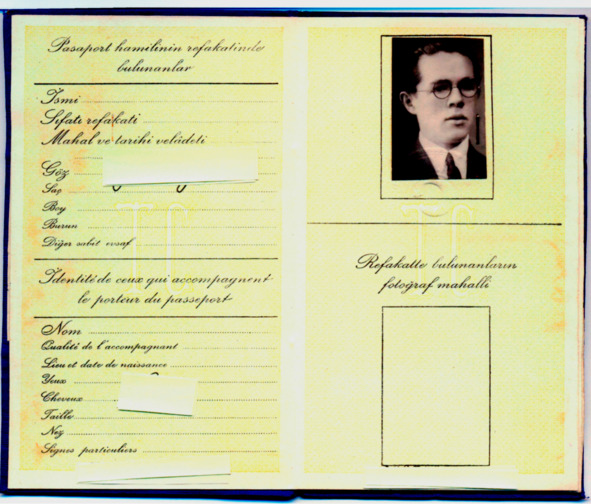 Pasaport hamilinin refakatinde
bulunanlar
İsmi
Sıfatı refakati
Mahal ve tarihi velâdeti
Göz
Saç
Boy
Burun
Diğer sabit evsaf
Identité de ceux qui accompagnent
le porteur du passeport
Nom
Qualité de l'accompagnant
Lieu et date de naissance
Yeux
Cheveux
Taille
Nez
Signes particuliers
TC
Refakatte bulunanların
fotoğraf mahalli